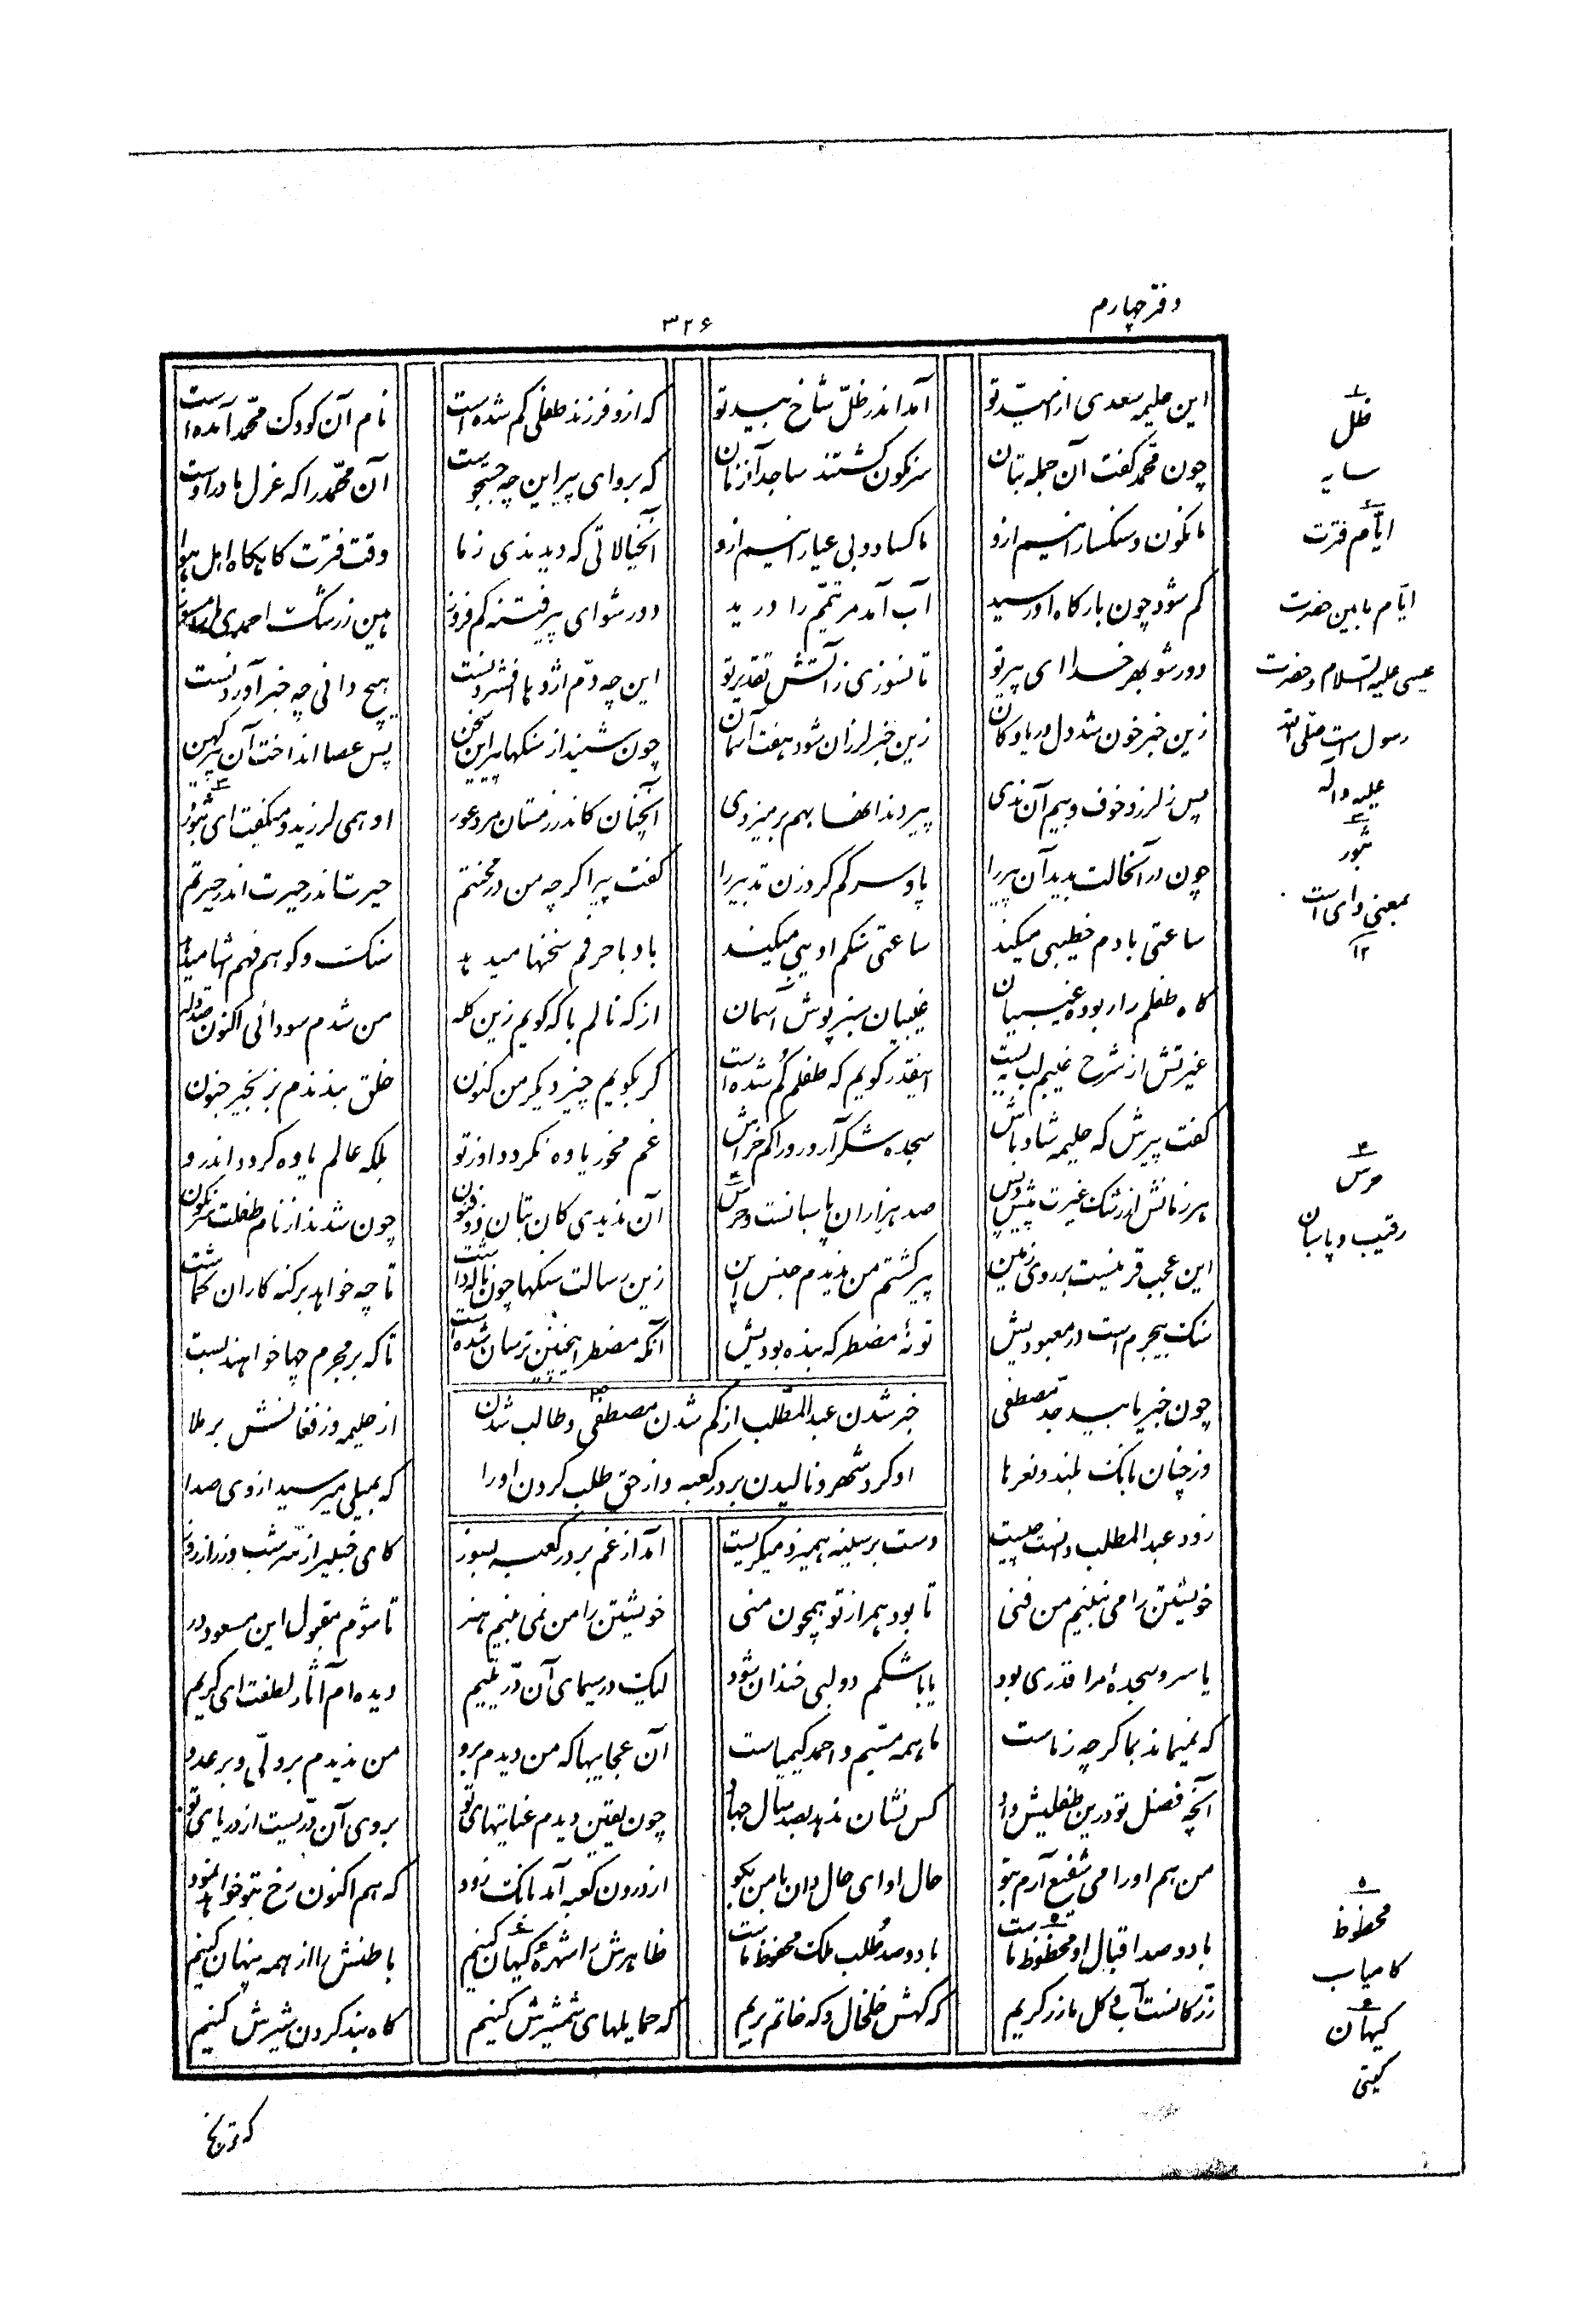 دفتر چهارم
۳۲۶
این حلیمه سعدی از امید تو آمد اندر ظلّ شاخ بید تو که ازو فرزند طفلی کم شده است نام آن کودک محمّد آمده است
چون محمّد کفت آن جمله بتان سرنکون کشتند ساجد آنزمان که برو ای پیر این چه جستجوست آن محمّد را که عزل ما دراوست
ما نکون و سنکسار آئیم ازو ما کساد و بی عیار آئیم ازو آنخیالاتی که دیدندی ز ما وقت فترت کاه کاه اهل هوا
کم شود چون بارکاه او رسید آب آمد مر تیمّم را درید دور شو ای پیر فتنه کم فروز هین ز رشک احمدی ما را مسوز
دور شو بهر خدا ای پیر تو تا نسوزی ز آتش تقدیر تو این چه دمّ اژدها افشردنست هیچ دانی چه خبر آوردنست
زین خبر خون شد دل دریا و کان زین خبر لرزان شود هفت آسمان چون شنید از سنکها پیر این سخن پس عصا انداخت آن پیر کهن
پس ز لرزه و خوف و بیم آن ندی پیر دندانها بهم بر میزدی آنچنان کاندر زمستان مرد عور او همی لرزید و میکفت ای ثبور
چون در آنحالت بدید آن پیر را پا و سر کم کرد زن تدبیر را کفت پیرا کرچه من در محنتم حیرت اندر حیرت اندر حیرتم
ساعتی بادم خطیبی میکند ساعتی سنکم ادیبی میکند باد با حرفم سخنها میدهد سنک و کوهم فهم اشیا میدهد
کاه طفلم را ربوده غیبیان غیبیان سبز پوش آسمان از که نالم با که کویم زین کله من شدم سودائی اکنون صد دله
غیرتش از شرح غیبم لب ببست اینقدر کویم که طفلم کم شده است کر بکویم چیز دیکر من کنون خلق بندندم بزنجیر جنون
کفت پیرش که حلیمه شاد باش سجده شکر آر و رو را کم خراش غم مخور یاوه نکردد او ز تو بلکه عالم یاوه کردد اندرو
هر زمانش از رشک غیرت پیش و پس صد هزاران پاسبانست و حرس آن ندیدی کان بتان ذو فنون چون شدند از نام طفلت سرنکون
این عجب قرنیست بر روی زمین پیر کشتم من ندیدم جنس این زین رسالت سنکها چون ناله داشت تا چه خواهد بر کنه کاران کماشت
سنک بیجرم است در معبودیش تو نۀ مضطر که بنده بودیش آنکه مضطر اینچنین ترسان شده است تا که بر مجرم چها خواهند بست
خبر شدن عبد المطّلب از کم شدن مصطفی و طالب شدن
او کرد شهر و نالیدن بر در کعبه و از حق طلب کردن او را
چون خبر یابید جد مصطفی از حلیمه وز فغانش بر ملا
وز چنان بانک بلند و نعرها که بمیلی میرسید از وی صدا
زود عبد المطلب دانست چیست دست بر سینه همیزد و میکریست آمد از غم بر در کعبه بسوز کای خبیر از سّر شب وز راز روز
خویشتن را می نبینم من فنی تا بود همراز تو همچون منی خویشتن را من نمی بینم هنر تا شوم مقبول این مسعود در
یا سر و سجده مرا قدری بود یا باشکم دولبی خندان شود لیک در سیمای آن درّ یتیم دیده ام آثار لطفت ای کریم
که نمیماند بما کرچه ز ماست ما همه مسّیم و احمد کیمیاست آن عجایبها که من دیدم برو من ندیدم بر ولّی و بر عدو
آنچه فضل تو درین طفلیش داد کس نشان ندهد بصد سال جهاد چون یقین دیدم عنایتهای تو بروی آن درّیست از دریای تو
من هم او را می شفیع آرم بتو حال او ای حال دان با من بکو از درون کعبه آمد بانک زود که هم اکنون رخ بتو خواهد نمود
با دو صد اقبال او محظوظ ماست با دو صد طُلب ملک محفوظ ماست ظاهرش را شهرۀ کیهان کنیم باطنش را از همه پنهان کنیم
زّر کانست آب و کل ما زرکریم که کهش خلخال و که خاتم بریم که حمایلهای شمشیرش کنیم کاه بند کردن شیرش کنیم
که ترنج
۱
ظل
سایه
۲
ایّام فترت
ایّام ما بین حضرت
عیسی علیه السّلام و حضرت
رسول است صلی الله
علیه و آله
۳
ثبور
بمعنی وای است
۱۲
۴
حرس
رقیب و پاسبان
۵
محظوظ
کامیاب
۶
کیهان
کیتی